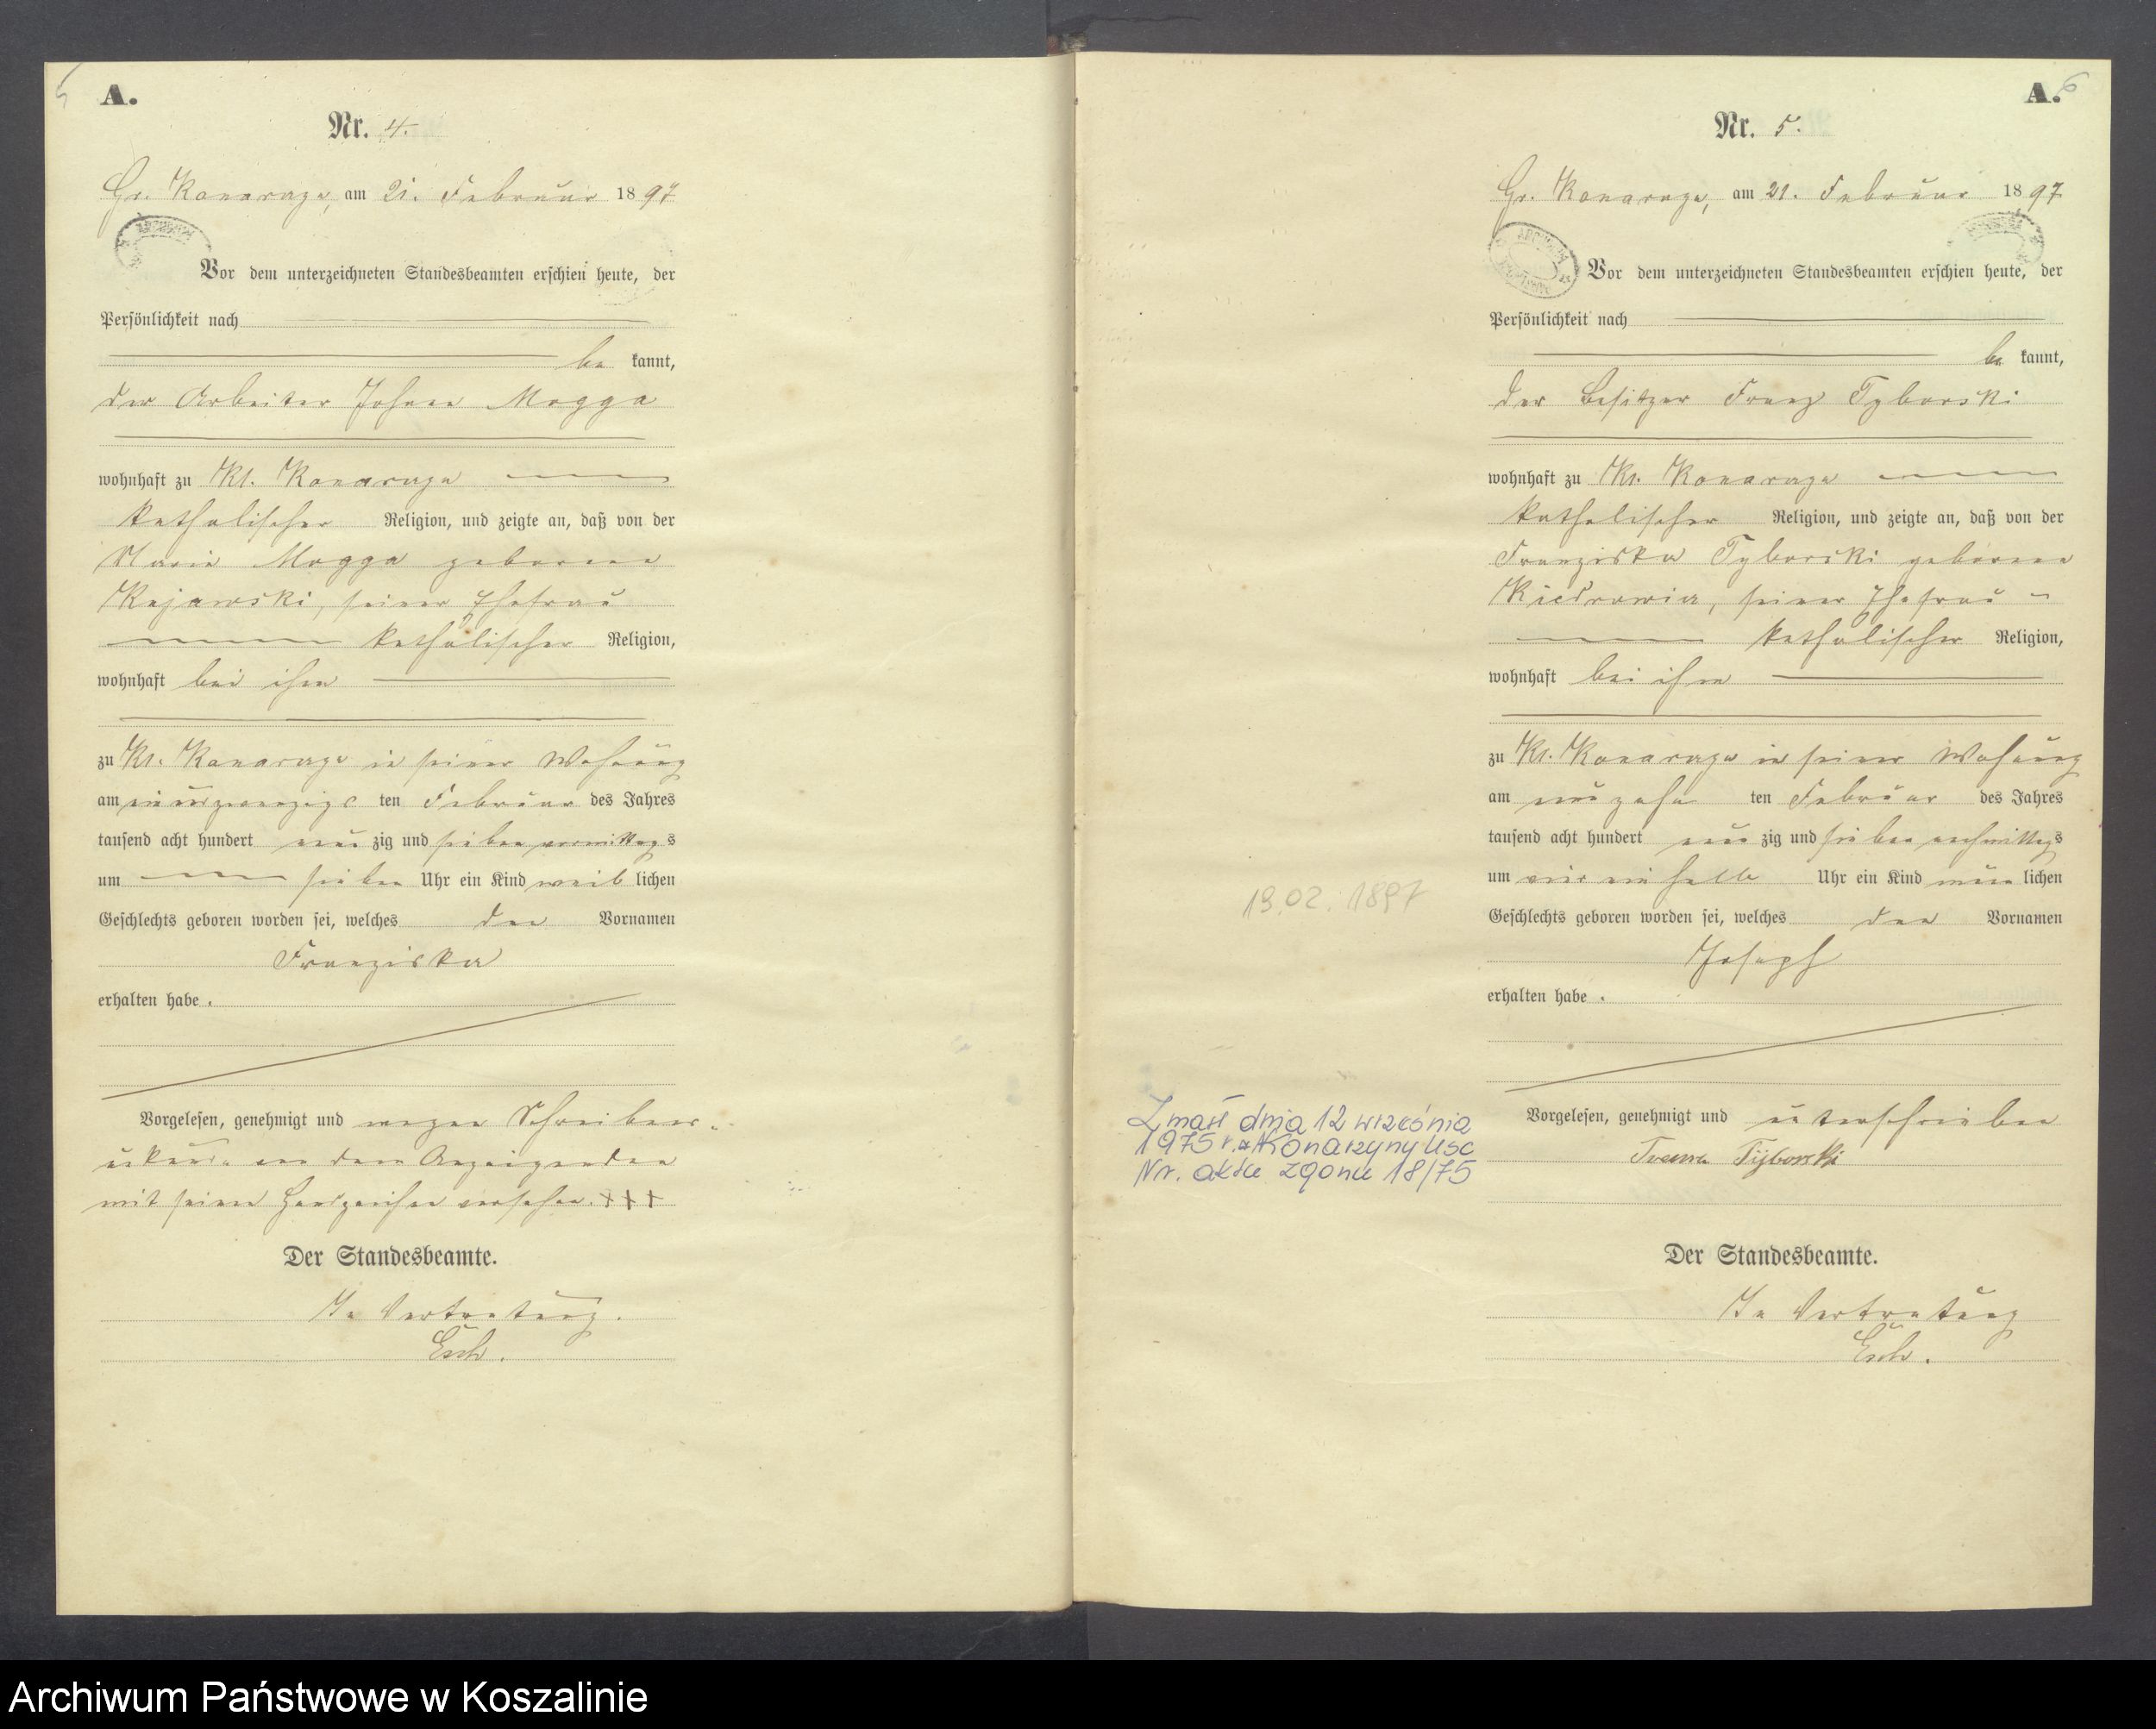 A.
Nr. 4.
Gr. Konarczyn, am 21. Februar 1897
Vor dem unterzeichneten Standesbeamten erschien heute, der
Persönlichkeit nach
be kannt,
der Arbeiter Johann Mogga
wohnhaft zu Kl. Konarczyn
katholischer Religion, und zeigte an, daß von der
Maria Mogga geborene
Kujawski, seiner Ehefrau
katholischer Religion,
wohnhaft bei ihm
zu Kl. Konarczyn in seiner Wohnung
am einundzwanzigs ten Februar des Jahres
tausend acht hundert neun zig und sieben vormittags
um sieben Uhr ein Kind weib lichen
Geschlechts geboren worden sei, welches den Vornamen
Franziska
erhalten habe.
Vorgelesen, genehmigt und wegen Schreibens-
unkunde von dem Anzeigenden
mit seinem Handzeichen versehen. +++
Der Standesbeamte.
In Vertretung.
A. 6
Nr. 5.
Gr. Konarczyn, am 21. Februar 1897
Vor dem unterzeichneten Standesbeamten erschien heute, der
Persönlichkeit nach
be kannt,
der Besitzer Franz Tyborski
wohnhaft zu Kl. Konarczyn
katholischer Religion, und zeigte an, daß von der
Franziska Tyborski geborene
seiner Ehefrau
katholischer Religion,
wohnhaft bei ihm
zu Kl. Konarczyn in seiner Wohnung
am neunzehn ten Februar des Jahres
tausend acht hundert neun zig und sieben nachmittags
um vier ein halb Uhr ein Kind männ lichen
Geschlechts geboren worden sei, welches den Vornamen
Joseph
erhalten habe.
19.02.1897
Zmarł dnia 12 września
1975 r. w Konarzyny Usc
Nr. aktu zgonu 18/75
Vorgelesen, genehmigt und unterschrieben
Franz Tyborski
Der Standesbeamte.
In Vertretung
Archiwum Państwowe w Koszalinie